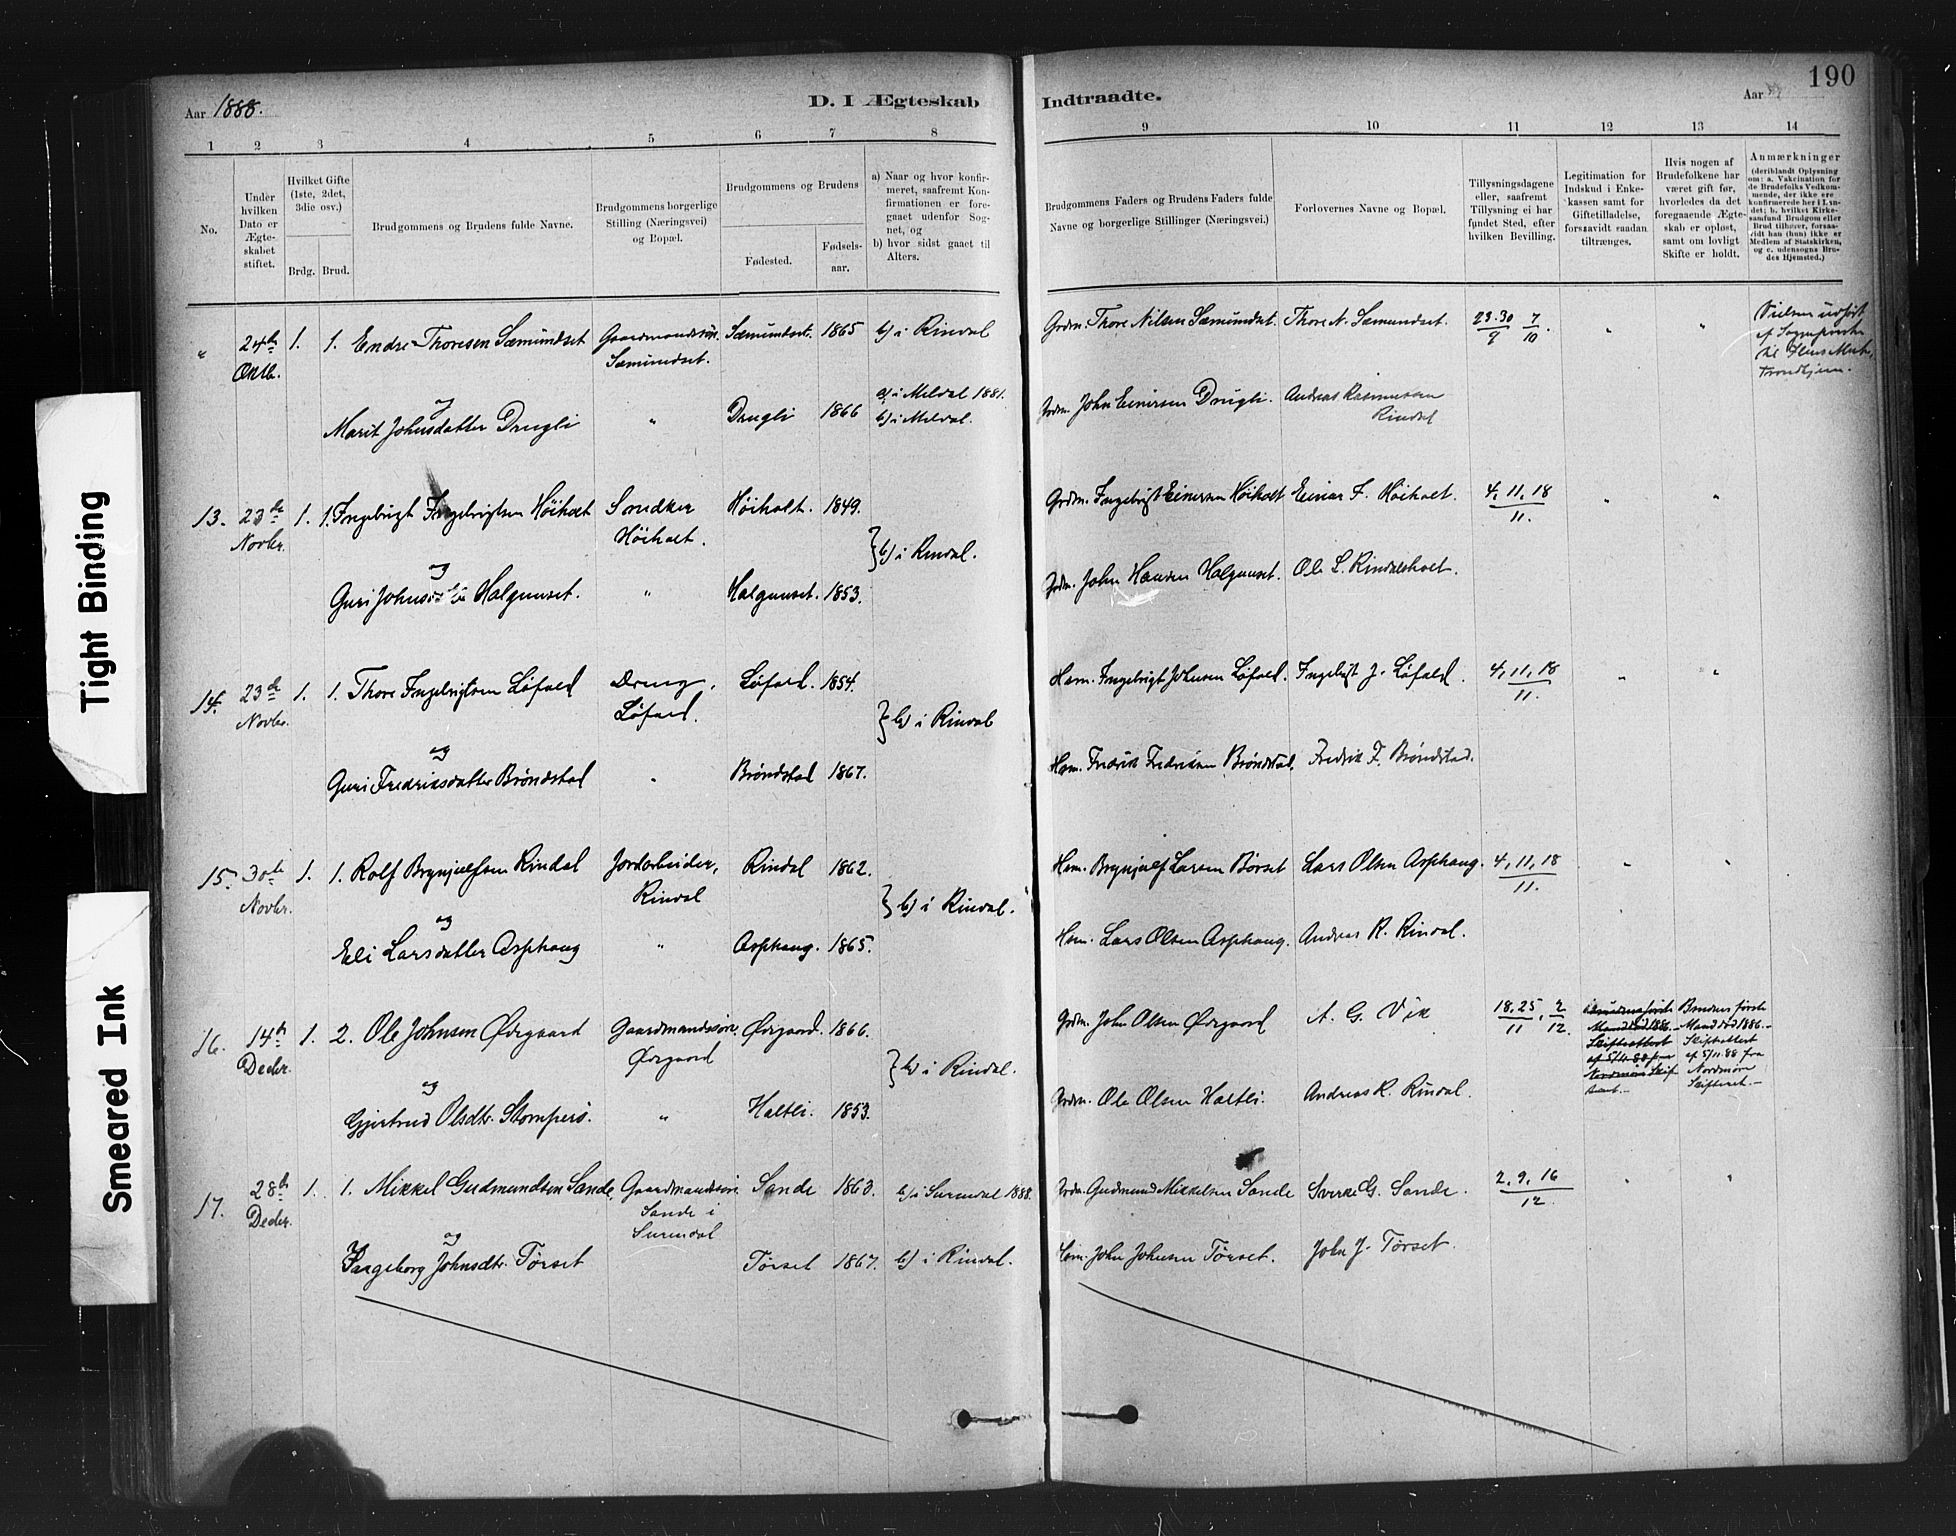 190
Aar 1888.
D. I Ægteskab Indtraadte.
Aar
1 2 3 4 5 6 7 8 9 10 11 12 13 14
No.
Under hvilken Dato er Ægteskabet stiftet.
Hvilket Gifte (1ste, 2det, 3die osv.)
Brdg. Brud.
Brudgommens og Brudens fulde Navne.
Brudgommens borgerlige Stilling (Næringsvei) og Bopæl.
Brudgommens og Brudens
Fødested.
Fødsels-aar.
a) Naar og hvor konfirmeret, saafremt Konfirmationen er foregaaet udenfor Sognet, og
b) hvor sidst gaaet til Alters.
Brudgommens Faders og Brudens Faders fulde Navne og borgerlige Stillinger (Næringsvei.)
Forlovernes Navne og Bopæl.
Tillysningsdagene eller, saafremt Tillysning ei har fundet Sted, efter hvilken Bevilling.
Legitimation for Indskud i Enkekassen samt for Giftetilladelse, forsaavidt saadan tiltrænges.
Hvis nogen af Brudefolkene har været gift før, hvorledes da det foregaaende Ægteskab er opløst, samt om lovligt Skifte er holdt.
Anmærkninger (deriblandt Oplysning om: a. Vakcination for de Brudefolks Vedkommende, der ikke ere konfirmerede her i Landet; b. hvilket Kirkesamfund Brudgom eller Brud tilhører, forsaavidt han (hun) ikke er Medlem af Statskirken, og c. udensogns Brudes Hjemsted.)
" 24de Oktb. 1. 1. Endre Thoresen Sæmundset Gaardmandssøn. Sæmundset. Sæmundset. 1865 b) i Rindal Grdm. Thore Nilsen Sæmundset. Thore N. Sæmundset. 23.30/9 7/10. " "
Vielsen udført af Sognepresten til Ilens Menh, Trondhjem.
og
Marit Johnsdatter Drugli " Drugli 1866 a) i Meldal 1881. b) i Meldal. Grdm. John Einersen Drugli. Andreas Rasmussen Rindal
13. 23de Novbr. 1. 1. Ingebrigt Ingebrigtsen Høiholt Snedker Høiholt. Høiholt. 1849. Grdm. Ingebrigt Einersen Høiholt Einar I. Høiholt. 4, 11, 18/11. " "
} b) i Rindal.
og
Guri Johnsdatter Halgunset. " Halgunset. 1853. Grdm. John Hansen Halgunset. Ole L. Rindalsholt.
14. 23de Novbr. 1. 1. Thore Ingebrigtsen Løfald Dreng, Løfald. Løfald. 1854. Hsm. Ingebrigt Johnsen Løfald. Ingebrigt J. Løfald. 4, 11, 18/11. " "
} b) i Rindal
og
Guri Fredriksdatter Brøndstad " Brøndstad 1867. Hsm. Fredrik Fredriksen Brøndstad. Fredrik F. Brøndstad.
15. 30te Novbr. 1. 1. Rolf Brynjulfsen Rindal Jordarbeider, Rindal Rindal 1862. Hsm. Brynjulf Larsen Børset Lars Olsen Asphaug. 4, 11, 18/11. " "
} b) i Rindal.
og
Eli Larsdatter Asphaug " Asphaug. 1865. Hsm. Lars Olsen Asphaug. Andreas R. Rindal.
16. 14de Decbr. 1. 2. Ole Johnsen Ødegaard Gaardmandssøn. Ødegaard Ødegaard. 1866. Grdm. John Olsen Ødegaard A. G. Vik 18, 25/11, 2/12.
Brudens første Mand død 1886. Skifteattest af 5/11 88 fra Nordmøre Skifteret.
Brudens første Mand død 1886. Skifteattest af 5/11 88 fra Nordmøre Skifteret.
} b) i Rindal.
og
Gjertrud Olsdtr. Stomperø. " Haltli. 1853. Grdm. Ole Olsen Haltli. Andreas R. Rindal.
17. 28de Decbr. 1. 1. Mikkel Gudmundsen Sande, Gaardmandssøn. Sande i Surendal Sande 1863. b) i Surendal 1888. Grdm. Gudmund Mikkelsen Sande Sverke G. Sande. 2, 9, 16/12. " "
og
Ingeborg Johnsdtr. Tørset Tørset 1867. b) i Rindal. Hsm. John Johnsen Tørset. John J. Tørset.
Tight Binding
Smeared Ink